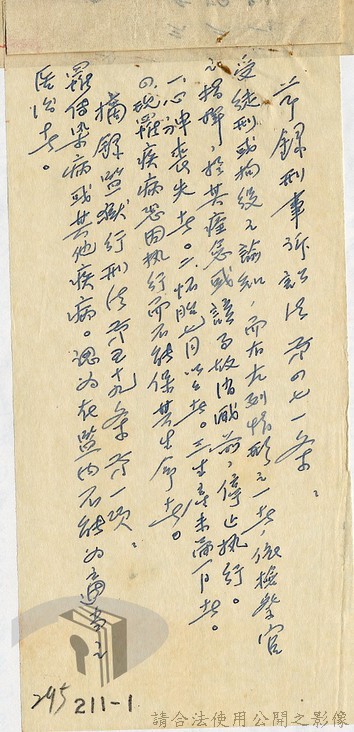 節錄刑事訴訟法第四七一條：
受徒刑或拘役之諭知，而有左列情形之一者，依檢察官
之指揮，於其痊愈或該事故消滅前，停止執行。
一、心神喪失者。二、懷胎七月以上者。三、生產未滿一月者。
四、現罹疾病恐因執行而不能保其生命者。
摘錄監獄行刑法第五十九條第一項：
罹傳染病或其他疾病。認為在監內不能為適當之
醫治者。
295 211-1
請合法使用公開之影像